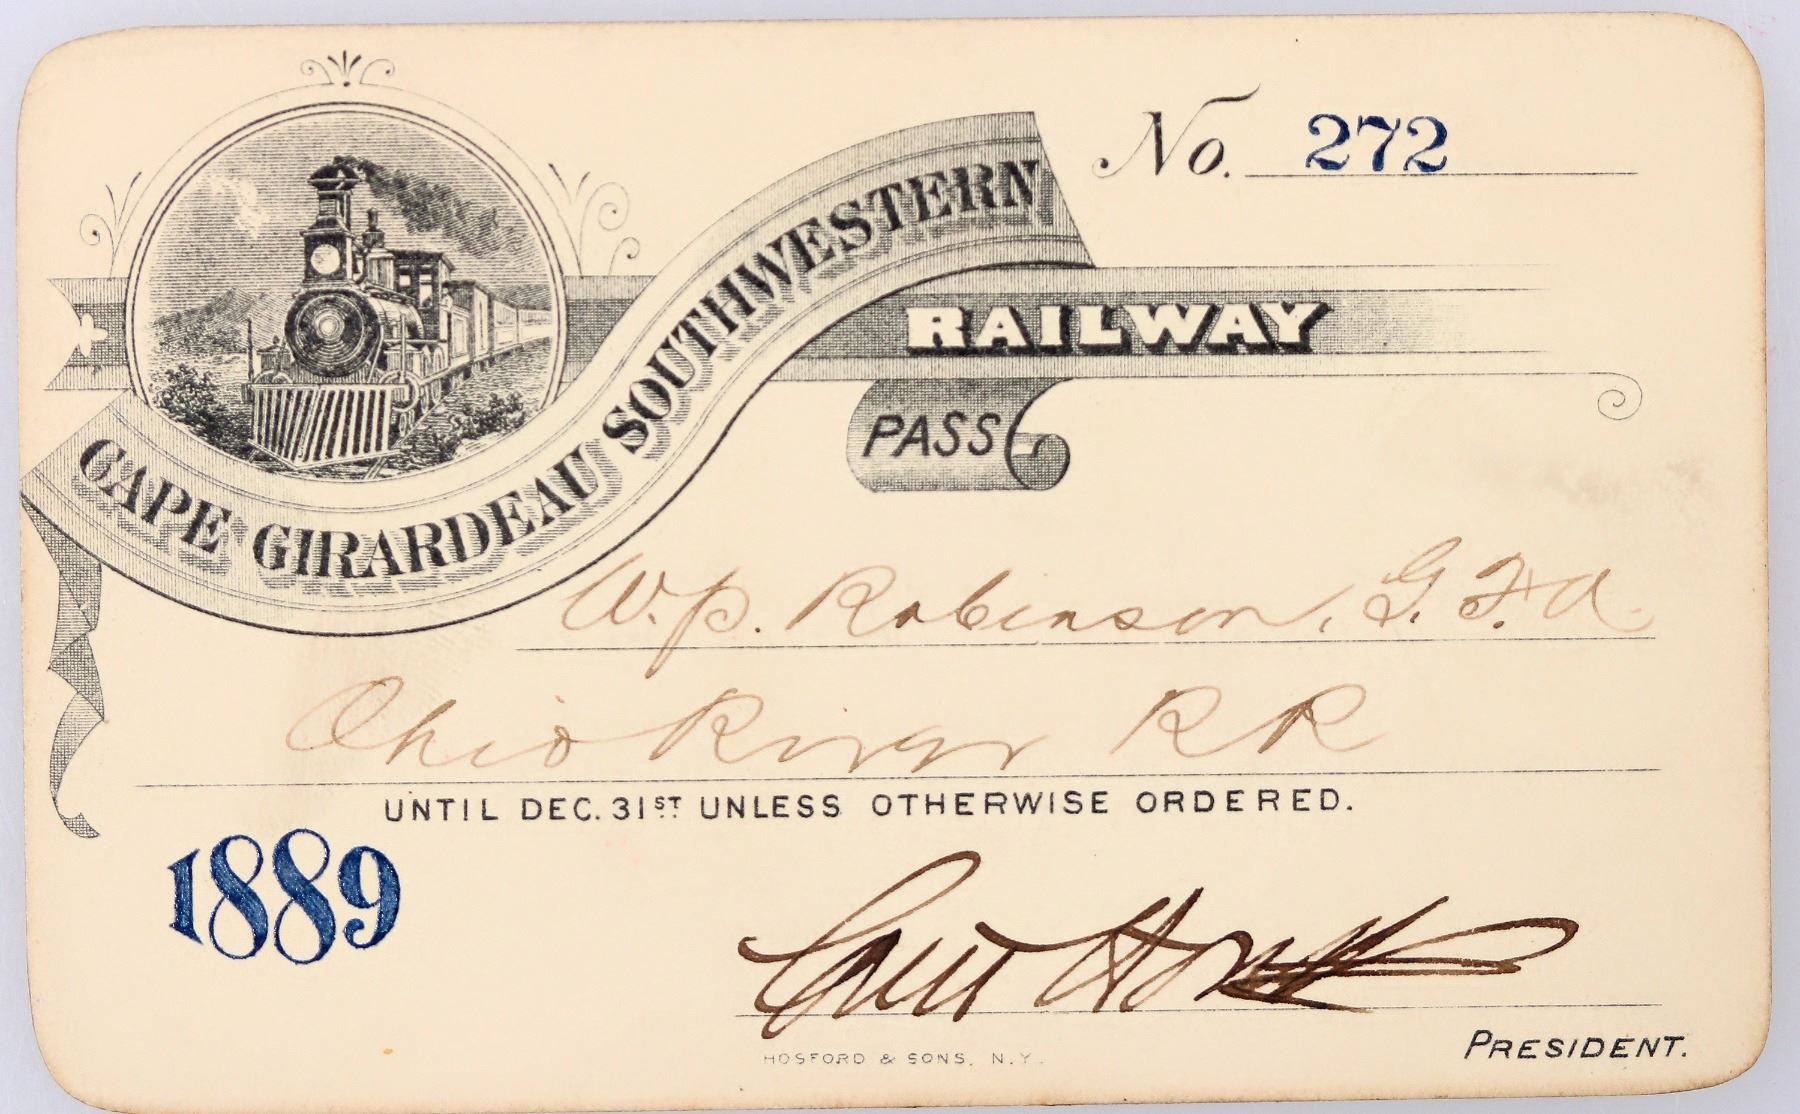 No. 272
CAPE GIRARDEAU SOUTHWESTERN
RAILWAY
PASS
W. P. Robinson, G. F. A.
Ohio River RR
UNTIL DEC. 31ST UNLESS OTHERWISE ORDERED.
1889
Louis Houck
PRESIDENT.
HOSFORD & SONS, N.Y.